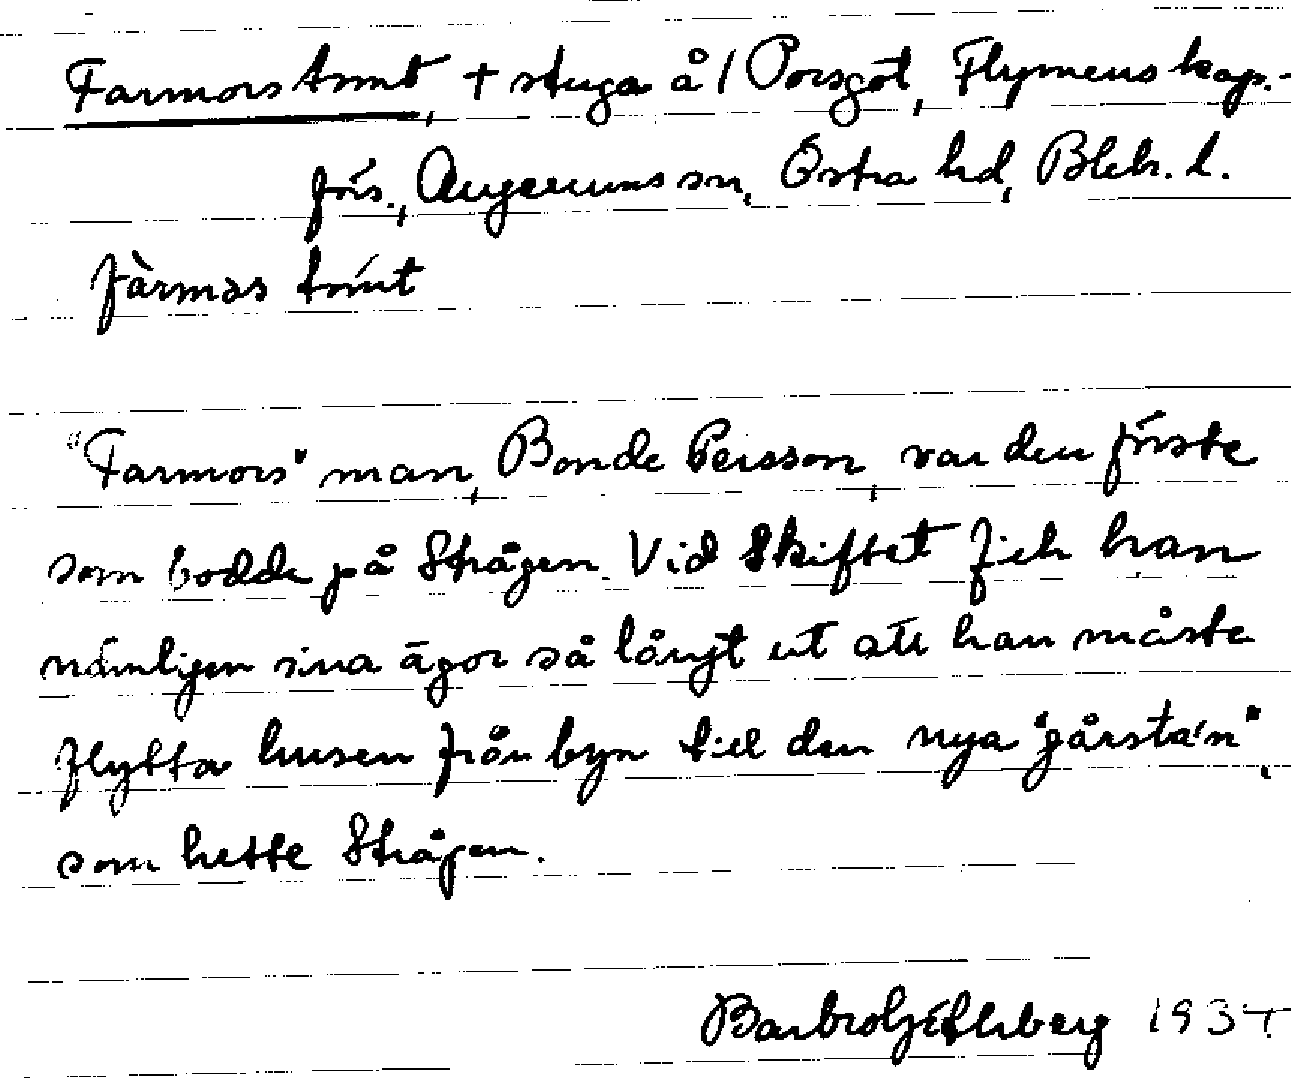 Farmors tomt, + stuga å 1 Porsgöl, Flymens kap.-
förs., Augerums sn, Östra hd, Blek. l.
fàrmɷs tómt
"Farmors" man, Bonde Persson, var den förste
som bodde på Strågen. Vid Skiftet fick han
nämligen sina ägor så långt ut att han måste
flytta husen från byn till den nya "gårsta'n",
som hette Strågen.
Barbro 1937